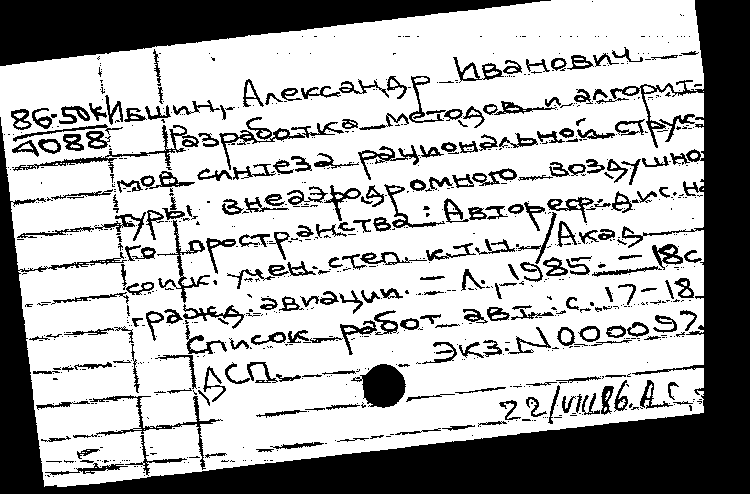 86-50к Ившин, Александр Иванович.
4088 Разработка методов и алгорит-
мов синтеза рациональной струк-
туры внеаэродромного воздушно
го пространства: Автореф. дис. на
соиск. учен. степ. к.т.н. / Акад.
гражд. авиации. — Л., 1985. — 18с
Список работ авт.: с. 17-18
ДСП. Экз. N 000097.
22/VIII 86. А.С.